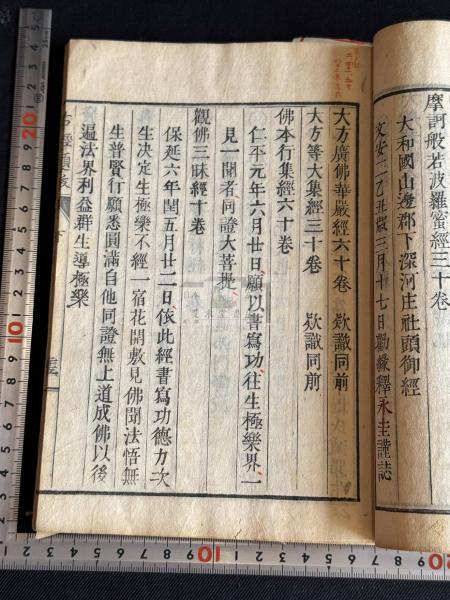 摩訶般若波羅蜜經三十卷
大和國山邊郡下深河庄社頭御經
文安二乙丑歲三月十七日勸緣釋永圭謹誌
大方廣佛華嚴經六十卷 欵識同前
大方等大集經三十卷 欵識同前
佛本行集經六十卷
仁平元年六月廿日願以書寫功往生極樂界一
見一聞者同證大菩提
觀佛三昧經十卷
保延六年閏五月廿二日依此經書寫功德力次
生決定生極樂不經 宿花開敷見佛聞法悟無
生普賢行願悉圓滿自他同證無上道成佛以後
遍法界利益群生導極樂